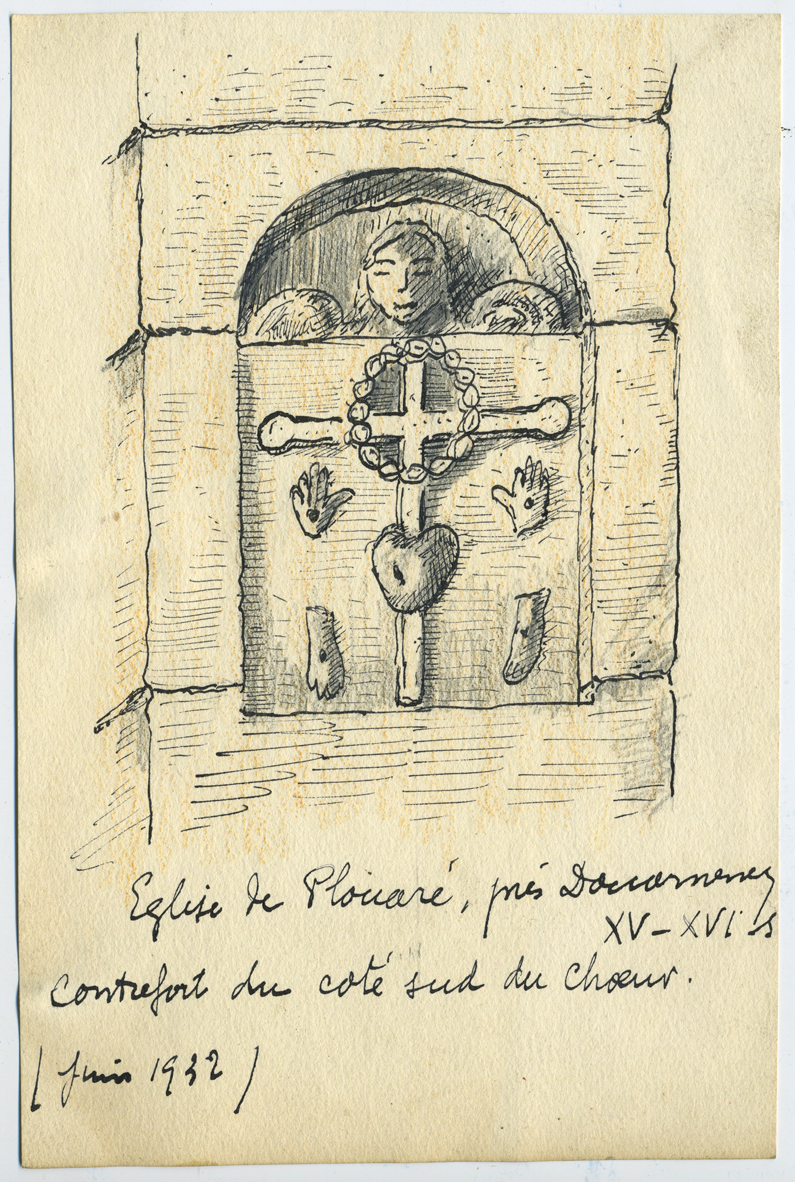 Eglise de Plouaré, près Douarnenez
XV – XVIe s
Contrefort du coté sud du Chœur.
(Juin 1932)